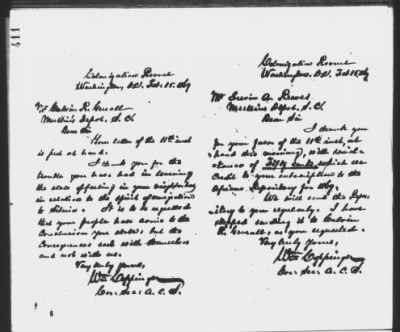 411
Colonization Rooms
Washington, D.C. Feb. 15. 69
Mr Calvin R.
Depot, S.C.
Dear Sir
Your letter of the 11th inst.
is just at hand.
I thank you for the
trouble you have had in learning
the state of feeling in your neighborhood
in relation to the spirit of emigration
to Liberia. It is to be regretted
that your people have come to the
conclusion you state: but the
consequences rest with themselves
and not with us.
Very truly yours,
Wm Coppinger
Cor. Sec. A. C. S.
Colonization Rooms
Washington, D.C. Feb. 15. 69
Mr A. Reeves
Depot, S.C.
Dear Sir
I thank you
for your favor of the 11th inst, at
hand this morning, with remit-
tance of Fifty cents, which we
credit to your subscription to the
African Repository for 69.
We will send the Repos-
itory to you regularly. I have
stopped sending it to Calvin
R. as you requested.
Very truly yours,
Wm Coppinger
Cor. Sec. A. C. S.